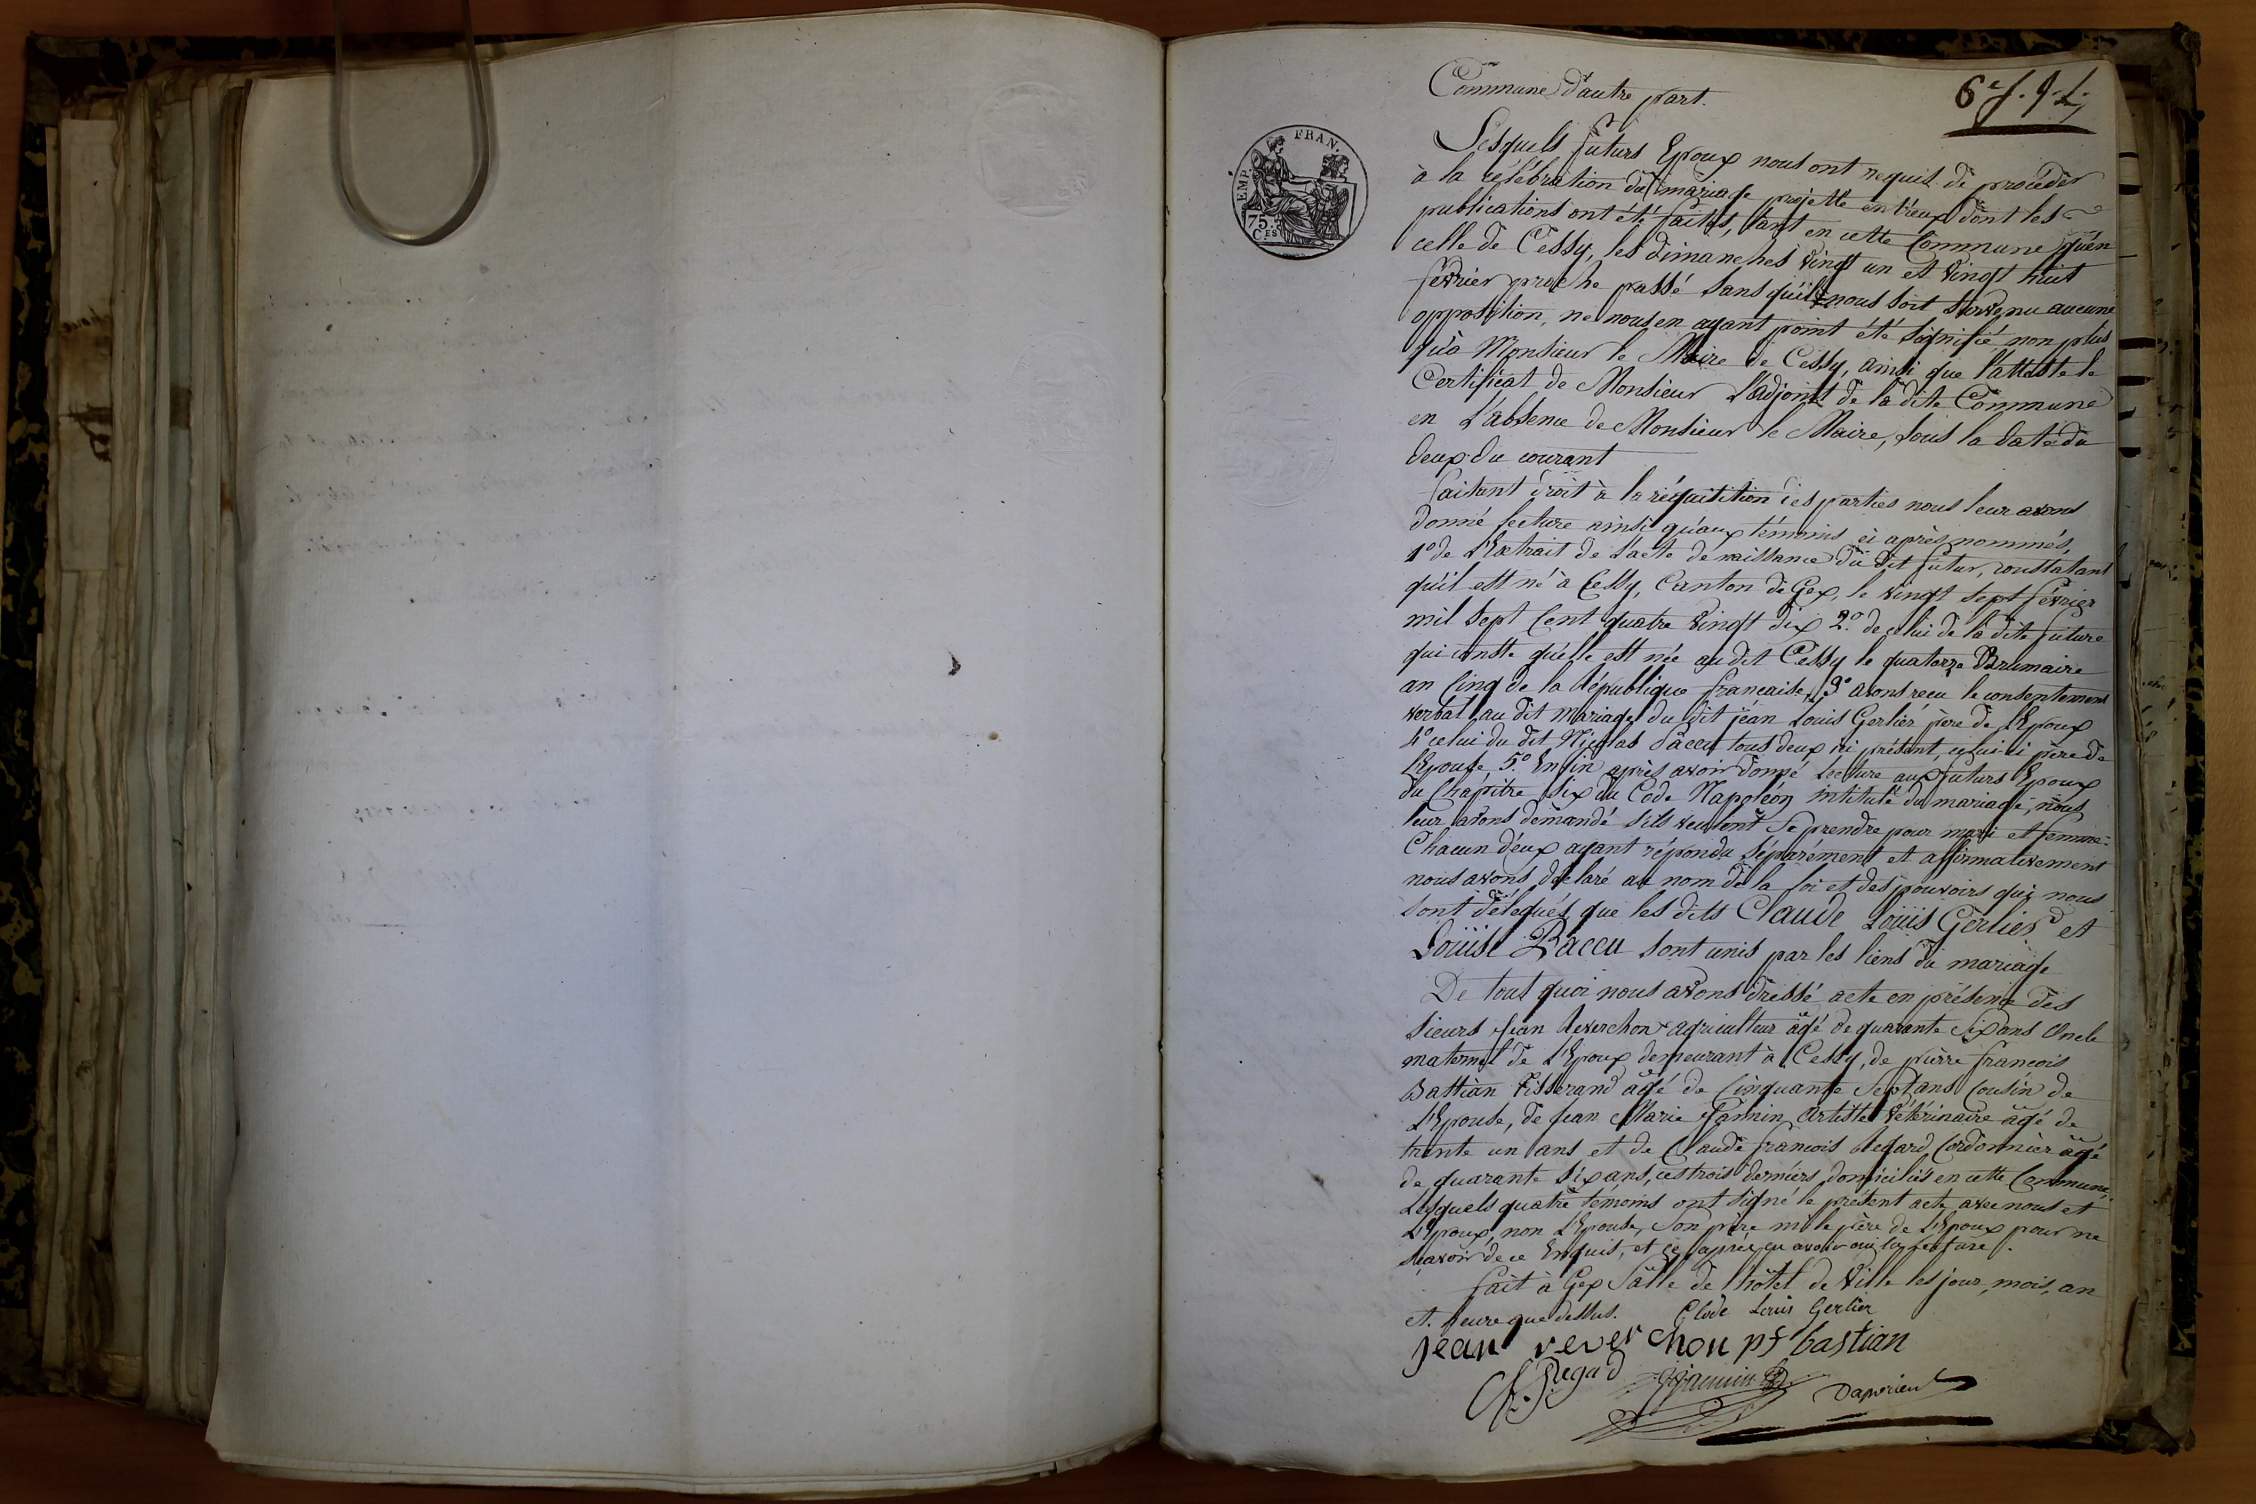 Commune d'autre part.
6e f. 9. L
EMP. FRAN.
75. CES
Lesquels futurs Epoux nous ont requis de procéder
à la célébration du mariage projetté entr'eux dont les
publications ont été faites, tant en cette Commune qu'en
celle de Cessy, les dimanches vingt un et vingt huit
février proche passé sans qu'il nous soit survenu aucune
opposition, ne nous en ayant point été signifié non plus
qu'à Monsieur le Maire de Cessy, ainsi que l'atteste le
Certificat de Monsieur L'adjoint de la dite Commune
en L'absence de Monsieur le Maire, sous la date du
deux du courant
faisant droit à la réquisition des parties nous leur avons
donné lecture ainsi qu'aux témoins ci après nommés,
1o de L'Extrait de L'acte de naissance du dit futur, constatant
qu'il est né à Cessy, Canton de Gex, le vingt sept février
mil sept Cent quatre vingt dix 2o. de celui de la dite future
qui conste qu'elle est née au dit Cessy le quatorze Brumaire
an Cinq de la République francaise, 3o avons recu le consentement
verbal au dit mariage du dit jéan Louis Gerlier père de L'Epoux
4o celui du dit Nicolas Baccu tous deux ici présent, celui ci père de
L'Epouse, 5o Enfin après avoir donné lecture aux futurs Epoux
du Chapitre six du Code Napoléon intitulé du mariage, nous
leur avons demandé s'ils veulent se prendre pour mari et femme:
Chacun d'eux ayant répondu séparément et affirmativement
nous avons déclaré au nom de la loi et des pouvoirs qui nous
sont délégués, que les dits Claude Louis Gerlier et
Louise Baccu sont unis par les liens du mariage
De tout quoi nous avons dressé acte en présence des
sieurs Jean Reverchon agriculteur âgé de quarante six ans Oncle
maternel de L'Epoux demeurant à Cessy, de pierre francois
Bastian Tisserand âgé de Cinquante Sept ans Cousin de
L'Epouse, de Jean Marie Jannin Artiste Vétérinaire âgé de
trente un ans et de Claude francois Regard Cordonnier âgé
de quarante six ans, ces trois derniers domiciliés en cette Commune,
Lesquels quatre témoins ont signé le présent acte avec nous et
L'Epoux, non L'Epouse, son père ni le père de L'Epoux pour ne
scavoir de ce Enquis, et ce après en avoir oui la lecture.
fait à Gex Salle de l'hôtel de Ville les jour, mois, an
et heure que dessus. Clode Louis Gerlier
jean reverchon pf bastian
Regad jannin